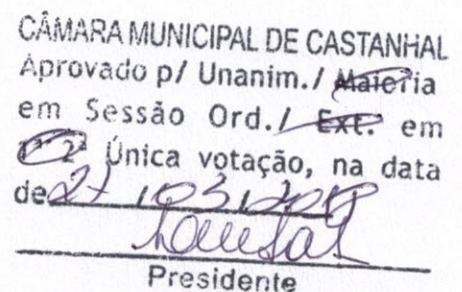 CÂMARA MUNICIPAL DE CASTANHAL
Aprovado p/ Unanim./ Maioria
em Sessão Ord./ Ext. em
2ª Única votação, na data
de 27 / 03 /
Presidente